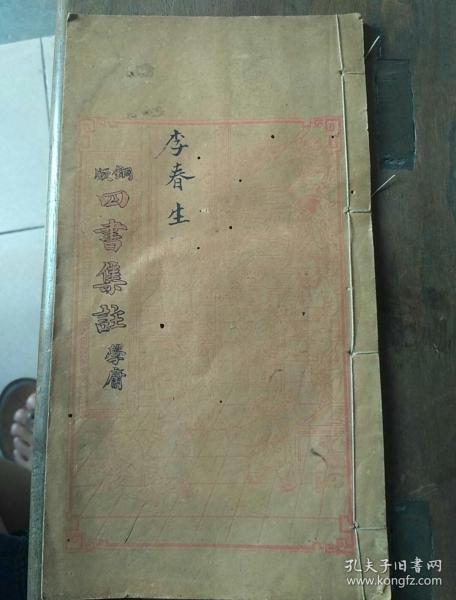 李春生
銅版四書集註學庸
孔夫子旧书网
www.kongfz.com